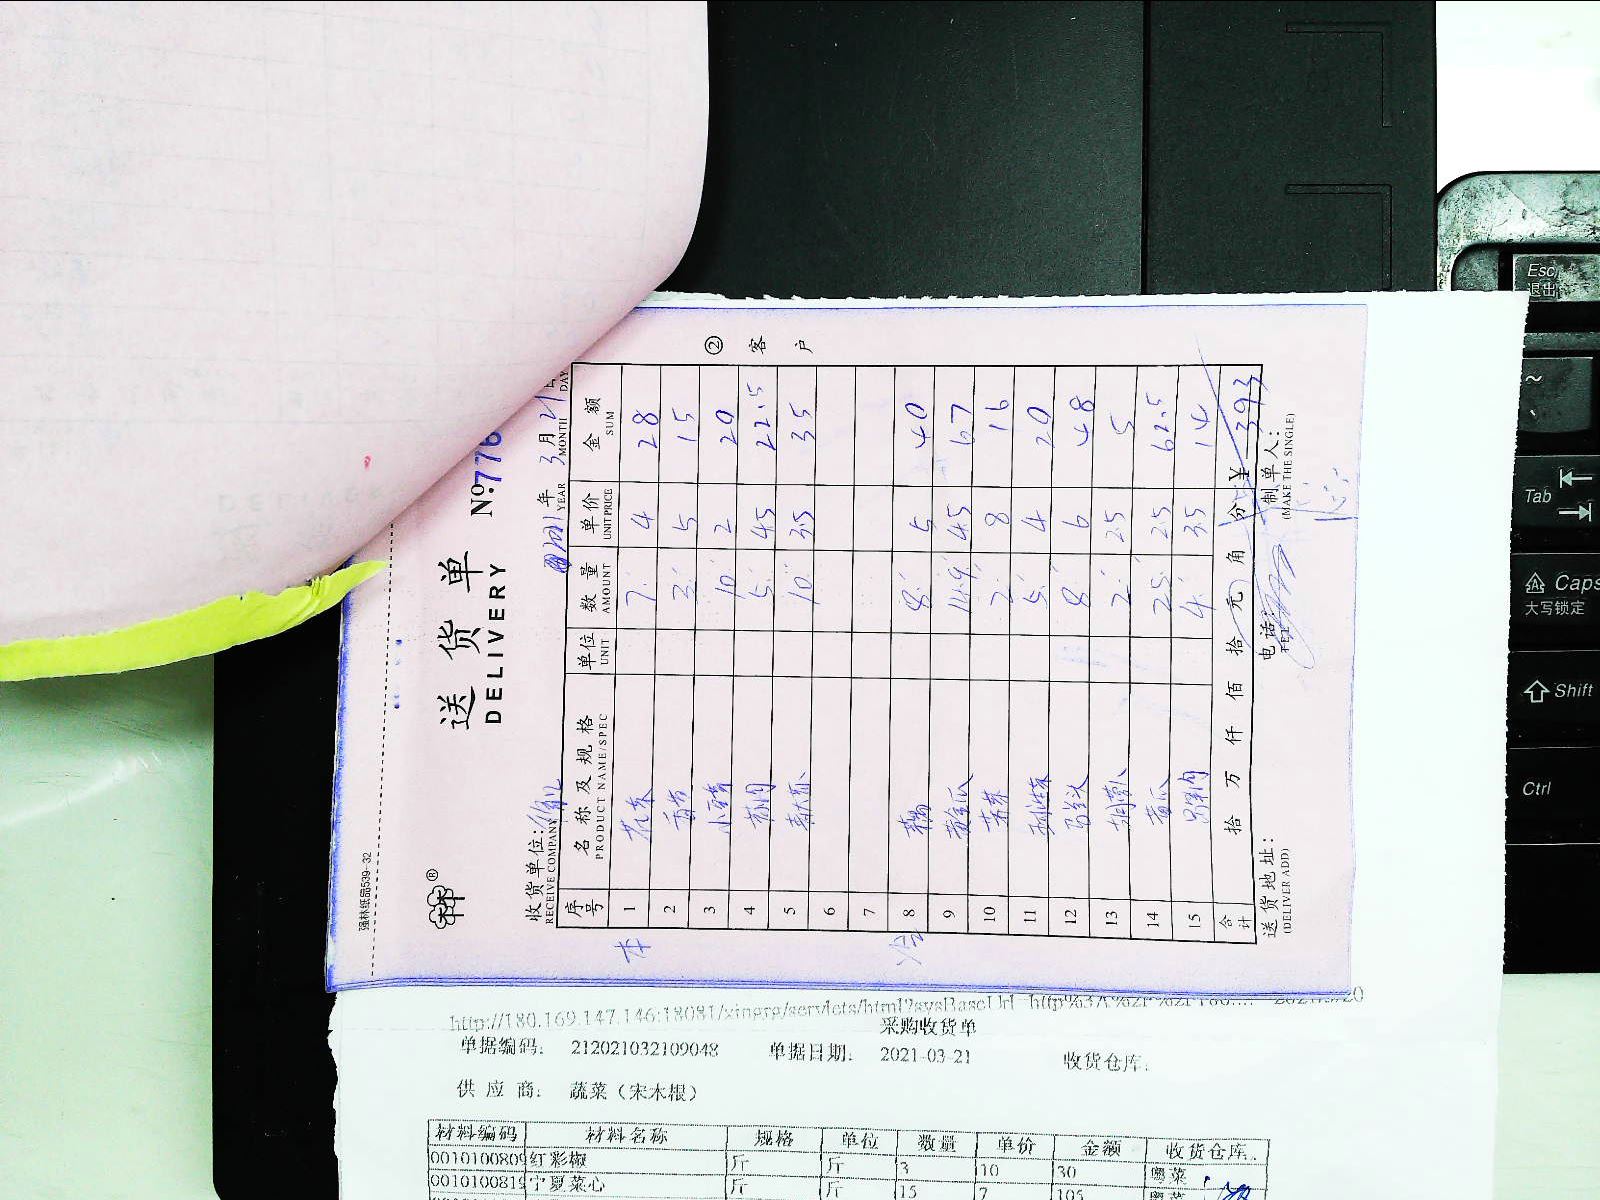 强林纸品539-32
送货单
DELIVERY Nº 776
收货单位:
RECEIVE COMPANY
2021年3月21日
YEAR MONTH DAY
序号 名称及规格 单位 数量 单价 金额
PRODUCT NAME/SPEC UNIT AMOUNT UNIT PRICE SUM
1 花菜 7 4 28
2 香芹 3 5 15
3 小白菜 10 2 20
4 4.5 22.5
5 10 3.5 35
6
7
8 8 5 40
9 黄金瓜 14.9 4.5 67
10 2 8 16
11 5 4 20
12 8 6 48
13 胡萝卜 2 2.5 5
14 黄瓜 25 2.5 62.5
15 4 3.5 14
合计 拾 万 仟 佰 拾 元 角 分 ¥ 393
送货地址: 电话: 制单人:
(DELIVER ADD) TEL (MAKE THE SINGLE)
② 客户
http://180.169.147.146:18081/xingrg/servlets/html?sysBaseUrl
采购收货单
单据编码: 212021032109048 单据日期: 2021-03-21 收货仓库:
供应商: 蔬菜(宋木根)
材料编码 材料名称 规格 单位 数量 单价 金额 收货仓库
0010100809 红彩椒 斤 斤 3 10 30 粤菜
0010100819 宁夏菜心 斤 斤 15 7 105 粤菜
Esc
退出
~
Tab
Caps
大写锁定
Shift
Ctrl